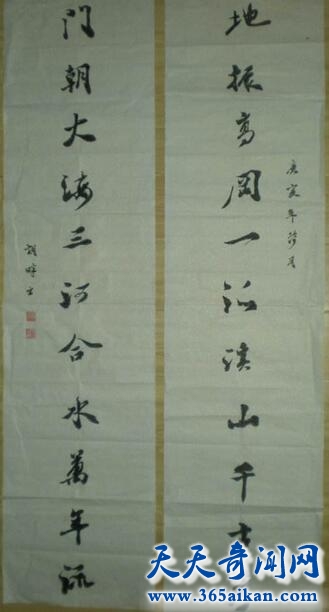 地振高岡一派溪山千古
庚寅年月
門朝大海三河合水萬年流
天天奇闻网
www.365aikan.com